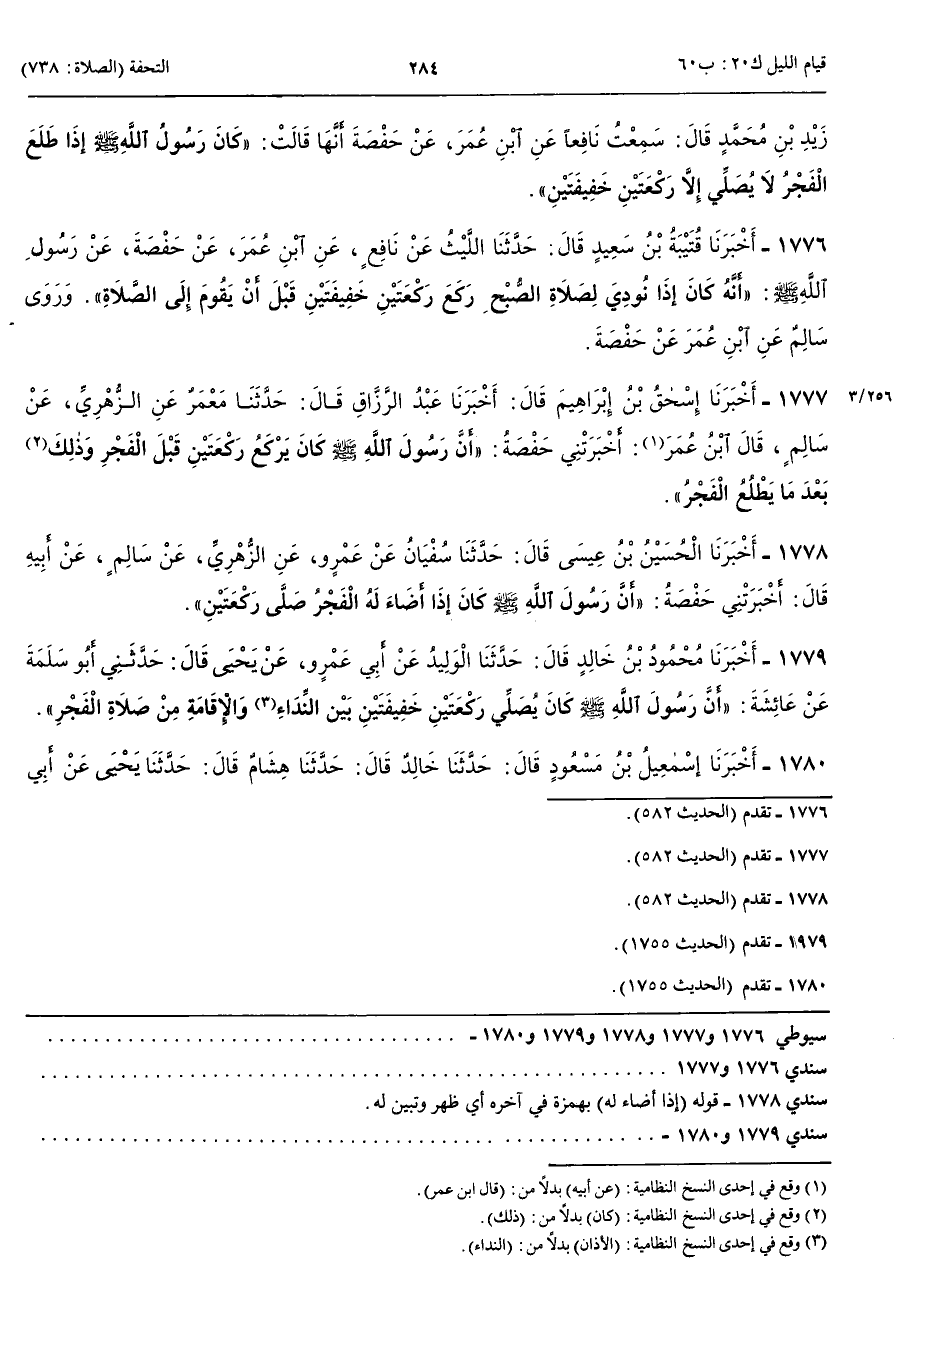 قيام الليل ك٢٠: ب٦٠
٢٨٤
التحفة (الصلاة: ٧٣٨)
زَيْدِ بْنِ مُحَمَّدٍ قَالَ: سَمِعْتُ نَافِعاً عَنِ ٱبْنِ عُمَرَ، عَنْ حَفْصَةَ أَنَّهَا قَالَتْ: «كَانَ رَسُولُ ٱللَّهِ ﷺ إِذَا طَلَعَ
الْفَجْرُ لَا يُصَلِّي إِلَّا رَكْعَتَيْنِ خَفِيفَتَيْنِ».
١٧٧٦ ـ أَخْبَرَنَا قُتَيْبَةُ بْنُ سَعِيدٍ قَالَ: حَدَّثَنَا اللَّيْثُ عَنْ نَافِعٍ، عَنِ ٱبْنِ عُمَرَ، عَنْ حَفْصَةَ، عَنْ رَسُولِ
ٱللَّهِ ﷺ: «أَنَّهُ كَانَ إِذَا نُودِيَ لِصَلَاةِ الصُّبْحِ رَكَعَ رَكْعَتَيْنِ خَفِيفَتَيْنِ قَبْلَ أَنْ يَقُومَ إِلَى الصَّلَاةِ». وَرَوَى
سَالِمٌ عَنِ ٱبْنِ عُمَرَ عَنْ حَفْصَةَ.
٣/٢٥٦
١٧٧٧ ـ أَخْبَرَنَا إِسْحٰقُ بْنُ إِبْرَاهِيمَ قَالَ: أَخْبَرَنَا عَبْدُ الرَّزَّاقِ قَالَ: حَدَّثَنَا مَعْمَرٌ عَنِ الزُّهْرِيِّ، عَنْ
سَالِمٍ، قَالَ ٱبْنُ عُمَرَ(١): أَخْبَرَتْنِي حَفْصَةُ: «أَنَّ رَسُولَ اللَّهِ ﷺ كَانَ يَرْكَعُ رَكْعَتَيْنِ قَبْلَ الْفَجْرِ وَذٰلِكَ(٢)
بَعْدَ مَا يَطْلُعُ الْفَجْرُ».
١٧٧٨ ـ أَخْبَرَنَا الْحُسَيْنُ بْنُ عِيسَى قَالَ: حَدَّثَنَا سُفْيَانُ عَنْ عَمْرٍو، عَنِ الزُّهْرِيِّ، عَنْ سَالِمٍ، عَنْ أَبِيهِ
قَالَ: أَخْبَرَتْنِي حَفْصَةُ: «أَنَّ رَسُولَ اللَّهِ ﷺ كَانَ إِذَا أَضَاءَ لَهُ الْفَجْرُ صَلَّى رَكْعَتَيْنِ».
١٧٧٩ ـ أَخْبَرَنَا مُحْمُودُ بْنُ خَالِدٍ قَالَ: حَدَّثَنَا الْوَلِيدُ عَنْ أَبِي عَمْرٍو، عَنْ يَحْيَى قَالَ: حَدَّثَنِي أَبُو سَلَمَةَ
عَنْ عَائِشَةَ: «أَنَّ رَسُولَ اللَّهِ ﷺ كَانَ يُصَلِّي رَكْعَتَيْنِ خَفِيفَتَيْنِ بَيْنَ النِّدَاءِ(٣) وَالْإِقَامَةِ مِنْ صَلَاةِ الْفَجْرِ».
١٧٨٠ ـ أَخْبَرَنَا إِسْمٰعِيلُ بْنُ مَسْعُودٍ قَالَ: حَدَّثَنَا خَالِدٌ قَالَ: حَدَّثَنَا هِشَامٌ قَالَ: حَدَّثَنَا يَحْيَى عَنْ أَبِي
١٧٧٦ ـ تقدم (الحديث ٥٨٢).
١٧٧٧ ـ تقدم (الحديث ٥٨٢).
١٧٧٨ ـ تقدم (الحديث ٥٨٢).
١٩٧٩ ـ تقدم (الحديث ١٧٥٥).
١٧٨٠ ـ تقدم (الحديث ١٧٥٥).
سيوطي ١٧٧٦ و١٧٧٧ و١٧٧٨ و١٧٧٩ و١٧٨٠ ـ ..................................
سندي ١٧٧٦ و١٧٧٧ ..................................................
سندي ١٧٧٨ ـ قوله (إذا أضاء له) بهمزة في آخره أي ظهر وتبين له.
سندي ١٧٧٩ و١٧٨٠ ـ ..................................................
(١) وقع في إحدى النسخ النظامية: (عن أبيه) بدلاً من: (قال ابن عمر).
(٢) وقع في إحدى النسخ النظامية: (كان) بدلاً من: (ذلك).
(٣) وقع في إحدى النسخ النظامية: (الأذان) بدلاً من: (النداء).